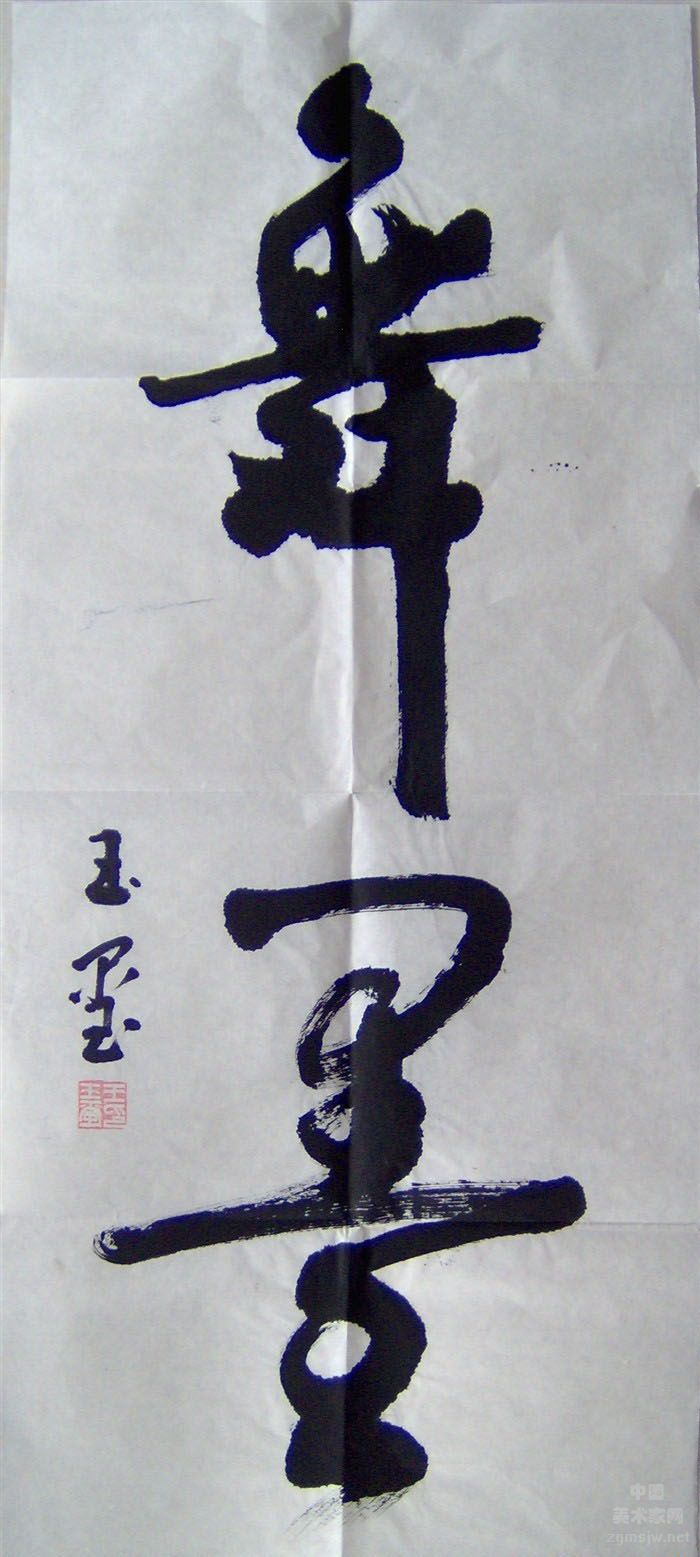 舞墨
玉墨
中国
美术家网
zgmsjw.net